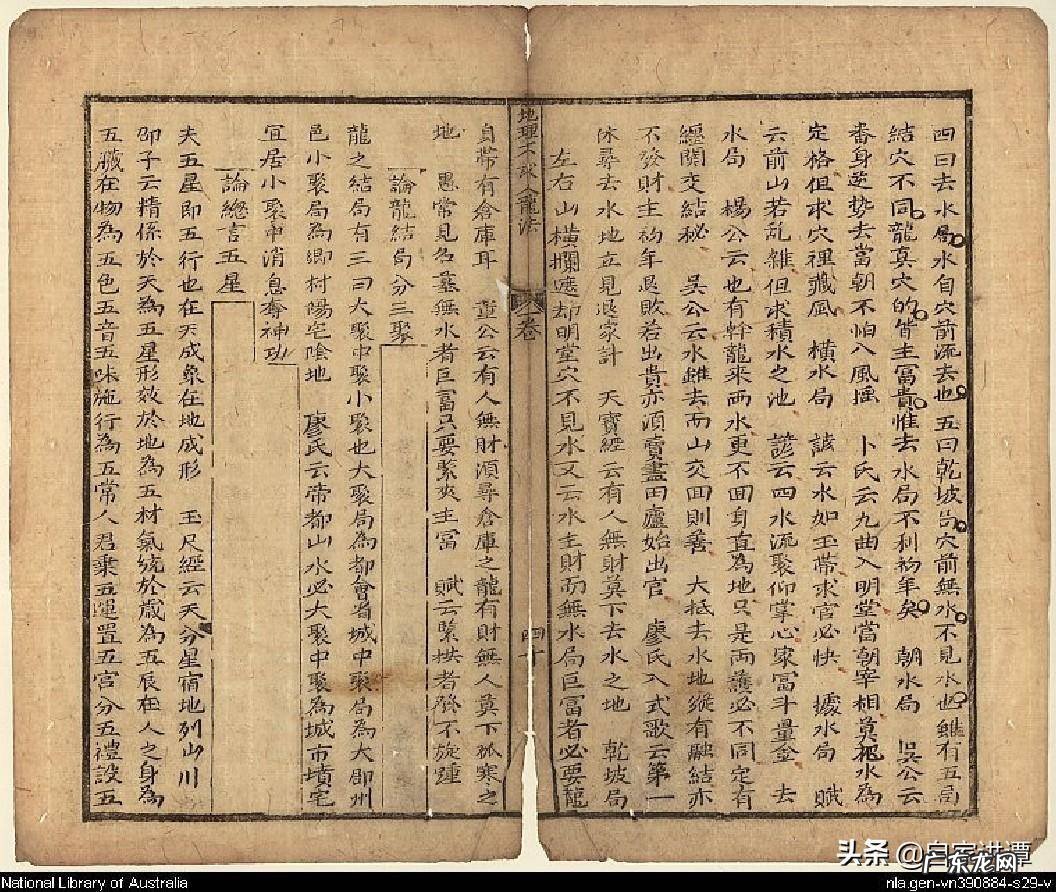 四曰去水局水自穴前流去也五曰乾坡出穴前無水不見水也雖有五局
結穴不同龍真穴的皆主富貴惟去水局不利初年矣　朝水局　吳公云
番身逆势去當朝不怕八風搖　卜氏云九曲入明堂當朝宰相莫把水為
定格但求穴裡藏風　橫水局　諺云水如玉帶求官必快　據水局　賦
云前山若乱雜但求積水之池　諺云四水流聚仰掌心家富斗量金　去
水局　楊公云也有幹龍來両水更不回身直為地只是両護必不同定有
纏關交結秘　吳公云水雖去而山交回則善　大抵去水地縱有融結亦
不發財主初年退敗若出貴亦須賣盡田廬始出官　廖氏入式歌云第一
休尋去水地立見退家計　天寶經云有人無財莫下去水之地　乾坡局
左右山橫攔遮却明堂穴不見水又云水主財而無水局巨富者必要龍
地理不求人龍法　卷　四十
自帶有倉庫耳　董公云有人無財須尋倉庫之龍有財無人莫下孤寒之
地　愚常見名墓無水者巨富只要緊夾主富　賦云緊拱者發不旋踵
論龍結局分三聚
龍之結局有三曰大聚中聚小聚也大聚局為都會省城中聚局為大郡州
邑小聚局為鄉村陽宅陰地　廖氏云帝都山水必大聚中聚為城市墳宅
宜居小聚中消息奪神功
論總言五星
夫五星即五行也在天成象在地成形　玉尺經云天分星宿地列山川
邵子云精係於天為五星形效於地為五材氣統於歲為五辰在人之身為
五臟在物為五色五音五味施行為五常人君乘五運置五宮分五禮設五
National Library of Australia
nla.gen-vn390884-s29-w
头条
广东龙网